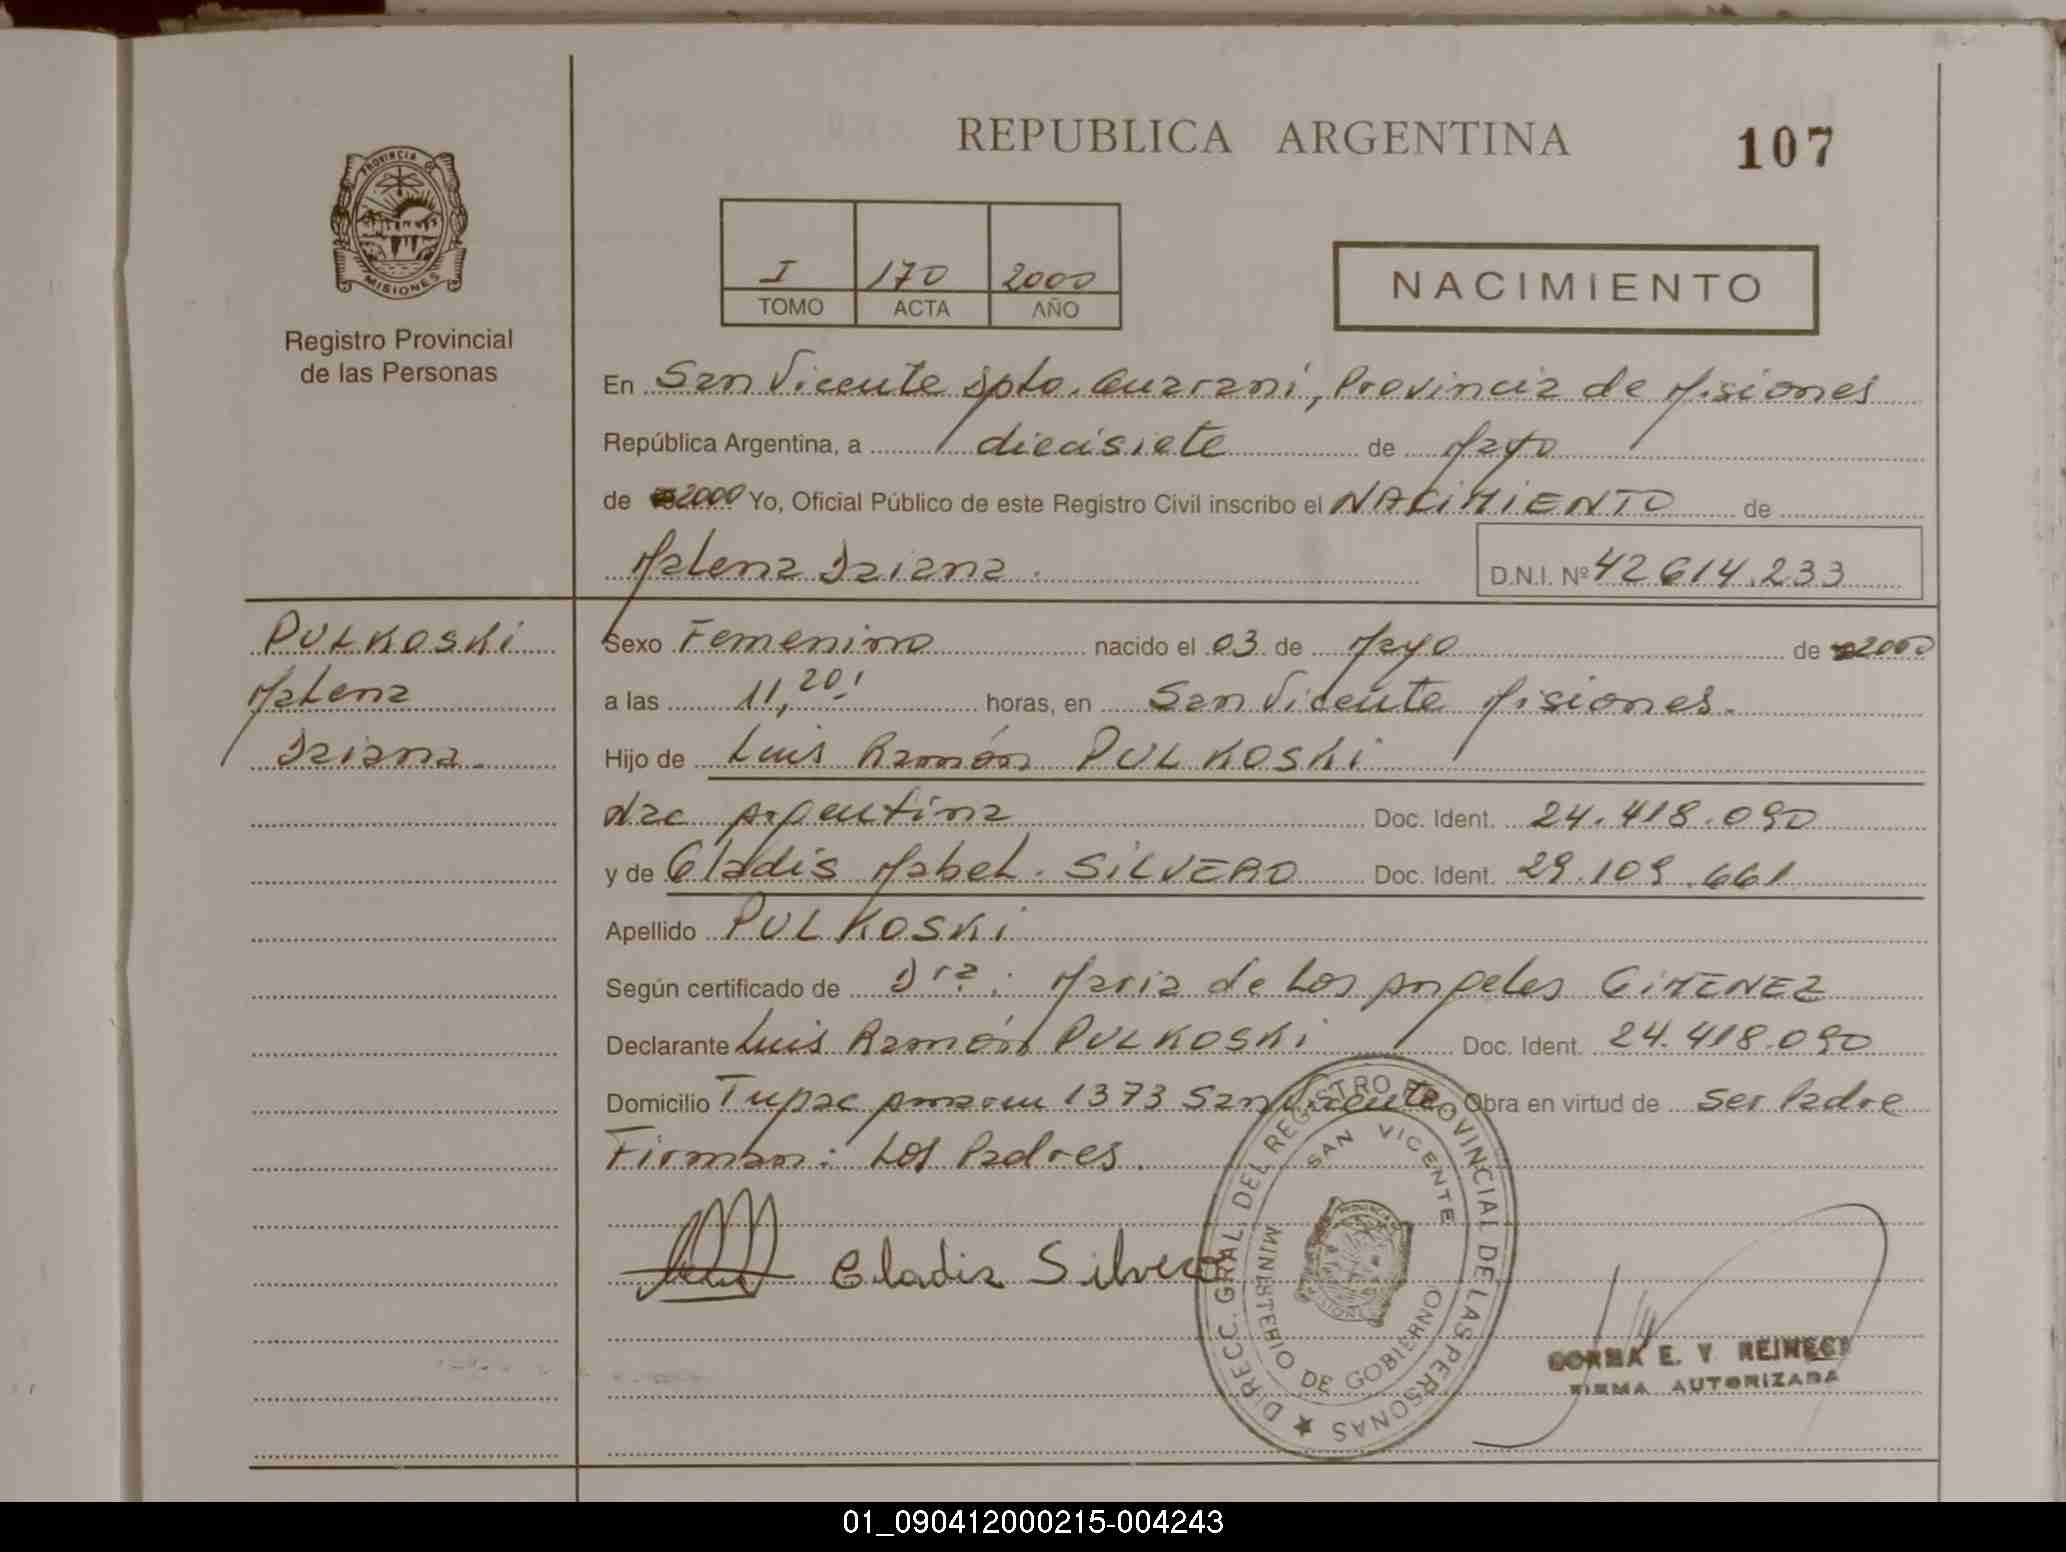 REPUBLICA ARGENTINA
107
PROVINCIA DE
MISIONES
Registro Provincial
de las Personas
I 170 2000
TOMO ACTA AÑO
NACIMIENTO
En San Vicente Dpto. Guaraní, Provincia de Misiones
República Argentina, a diecisiete de Mayo
de 2000 Yo, Oficial Público de este Registro Civil inscribo el NACIMIENTO de
Malena Daiana.
D.N.I. Nº 42614.233
PULKOSKI
Malena
Daiana.
Sexo Femenino nacido el 03 de Mayo de 2000
a las 11,20' horas, en San Vicente Misiones.
Hijo de Luis Ramón PULKOSKI
Nac Argentina Doc. Ident. 24.418.090
y de Gladis Mabel. SILVERO Doc. Ident. 29.109.661
Apellido PULKOSKI
Según certificado de Dra: Maria de Los Angeles GIMENEZ
Declarante Luis Ramón PULKOSKI Doc. Ident. 24.418.090
Domicilio Tupac Amaru 1373 San Vicente Obra en virtud de Ser Padre
Firman: Los Padres.
Gladis Silvero
DIRECC. GRAL. DEL REGISTRO PROVINCIAL DE LAS PERSONAS
SAN VICENTE
MINISTERIO DE GOBIERNO
E. Y. REINECK
FIRMA AUTORIZADA
01_090412000215-004243